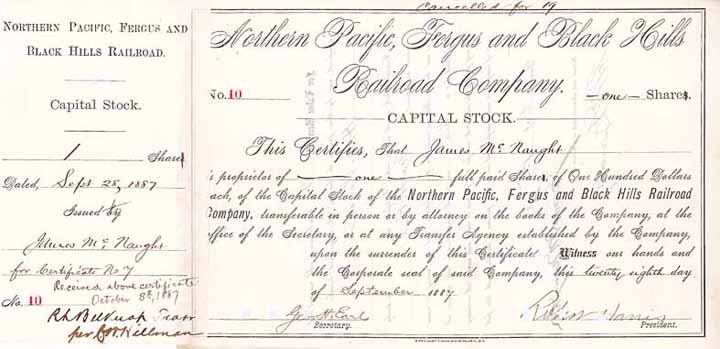 Cancelled for 19
NORTHERN PACIFIC, FERGUS AND
BLACK HILLS RAILROAD.
Capital Stock.
1 Share
Dated, Sept 28, 1887
Issued to
James McNaught
for Certificate No 7
Received above certificate
October 8th, 1887
No. 10
per Kellman
Northern Pacific, Fergus and Black Hills
Railroad Company.
No. 10 —one— Shares.
CAPITAL STOCK.
This Certifies, That James McNaught
is proprietor of —one— full paid Share, of One Hundred Dollars
each, of the Capital Stock of the Northern Pacific, Fergus and Black Hills Railroad
Company, transferable in person or by attorney on the books of the Company, at the
office of the Secretary, or at any Transfer Agency established by the Company,
upon the surrender of this Certificate. Witness our hands and
the Corporate seal of said Company, this twenty eighth day
of September 1887
Geo. H. Earl Robert Harris
Secretary. President.